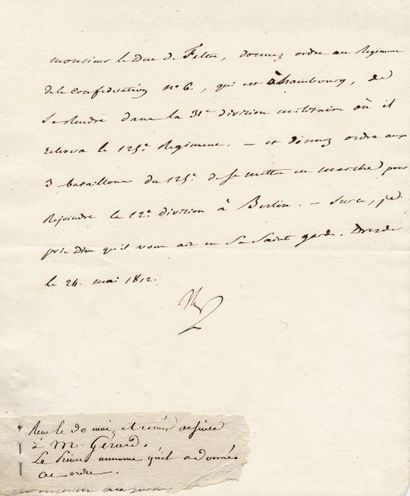 Monsieur le Duc de Feltre, donnez ordre au Régiment
de la Confédération n° 6, qui est à hambourg, de
se rendre dans la 31e division militaire où il
relevera le 125e Régiment. - et donnez ordre aux
3 bataillons du 125e de se mettre en marche pour
rejoindre la 12e division à Berlin. - Sur ce, je
prie Dieu qu'il vous ait en sa Sainte garde. Dresde
le 24. mai 1812.
Np
Reçu le 30 mai, et
à M. Gérard.
Le Prince annonce qu'il a donné
cet ordre.